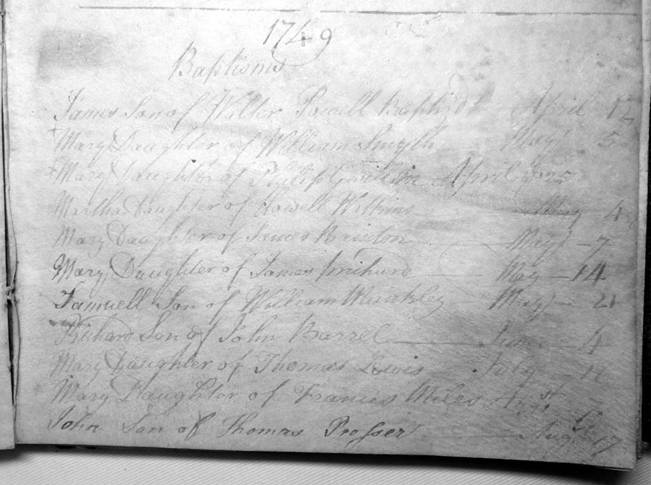 1749
Baptisms
James Son of Walter Powell Baptiz'd April 12
Mary Daughter of William Smyth May 5
Mary Daughter of Phillip April
Martha Daughter of Howell Watkins May 4
Mary Daughter of James May 7
Mary Daughter of James prichard May 14
Samuell Son of William May 21
Richard Son of John Barrel June 4
Mary Daughter of Thomas Lewis July
Mary Daughter of Francis Miles
John Son of Thomas Prosser Augst 17